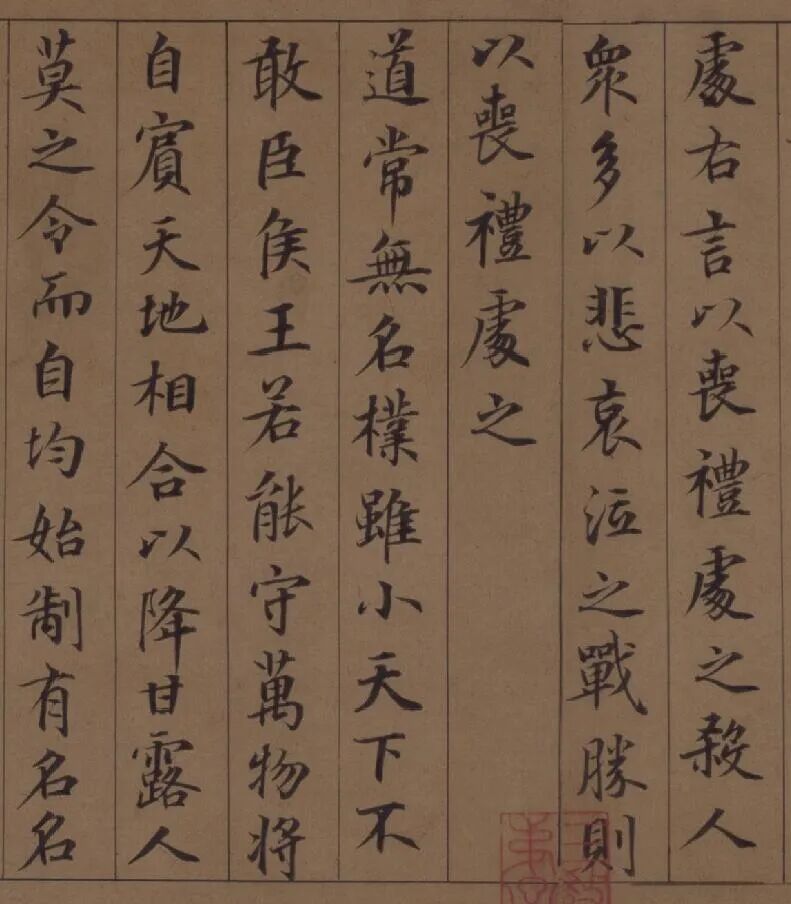 處右言以喪禮處之殺人
衆多以悲哀泣之戰勝則
以喪禮處之
道常無名樸雖小天下不
敢臣侯王若能守萬物将
自賔天地相合以降甘露人
莫之令而自均始制有名名